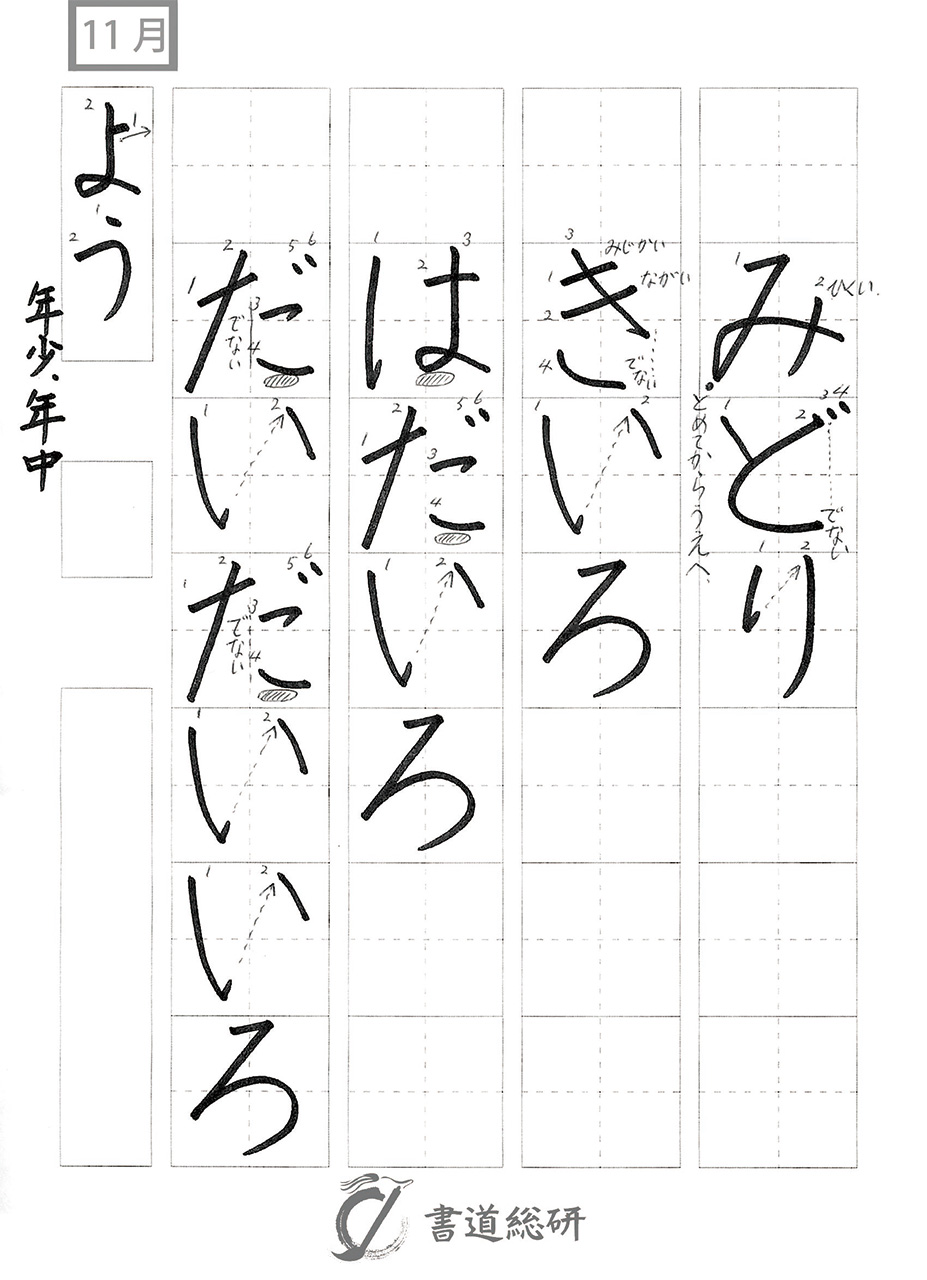 11月
みどり
ひくい.
とめてからうえへ
でない
きいろ
みじかい
ながい
でない
はだいろ
だいだいいろ
でない
でない
よう
年少、年中
書道総研